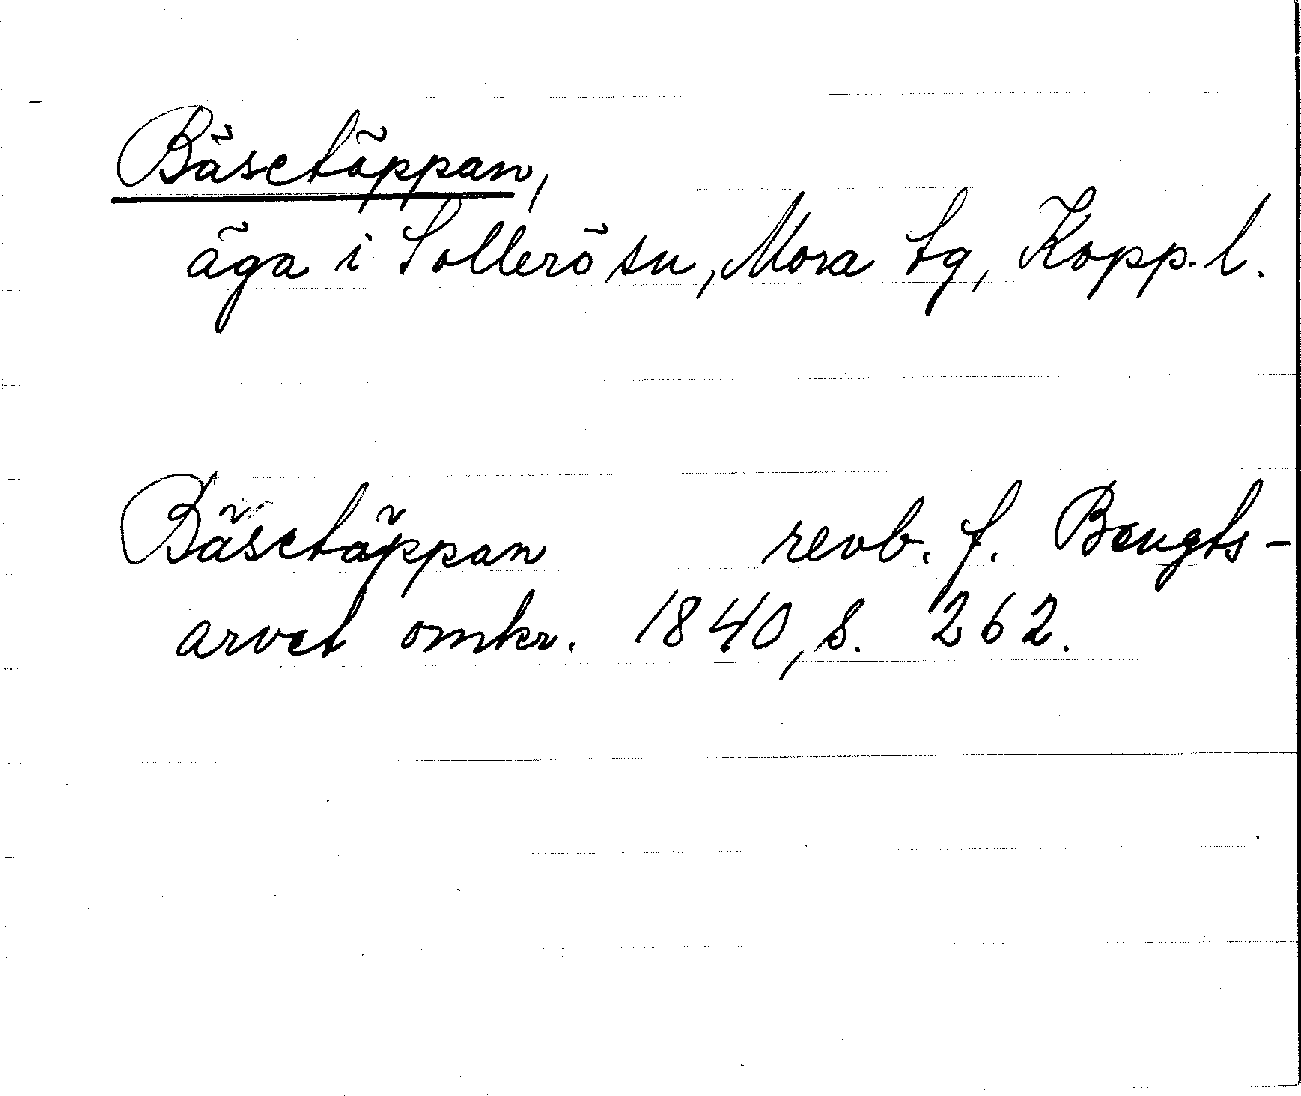 Bäsetöppan,
äga i Sollerö sn, Mora tg, Kopp. l.
Bäsetäppan revb. f. Bengts-
arvet omkr. 1840, s. 262.